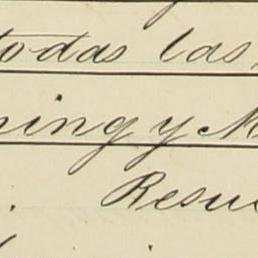 todas las
ning y M
Resu